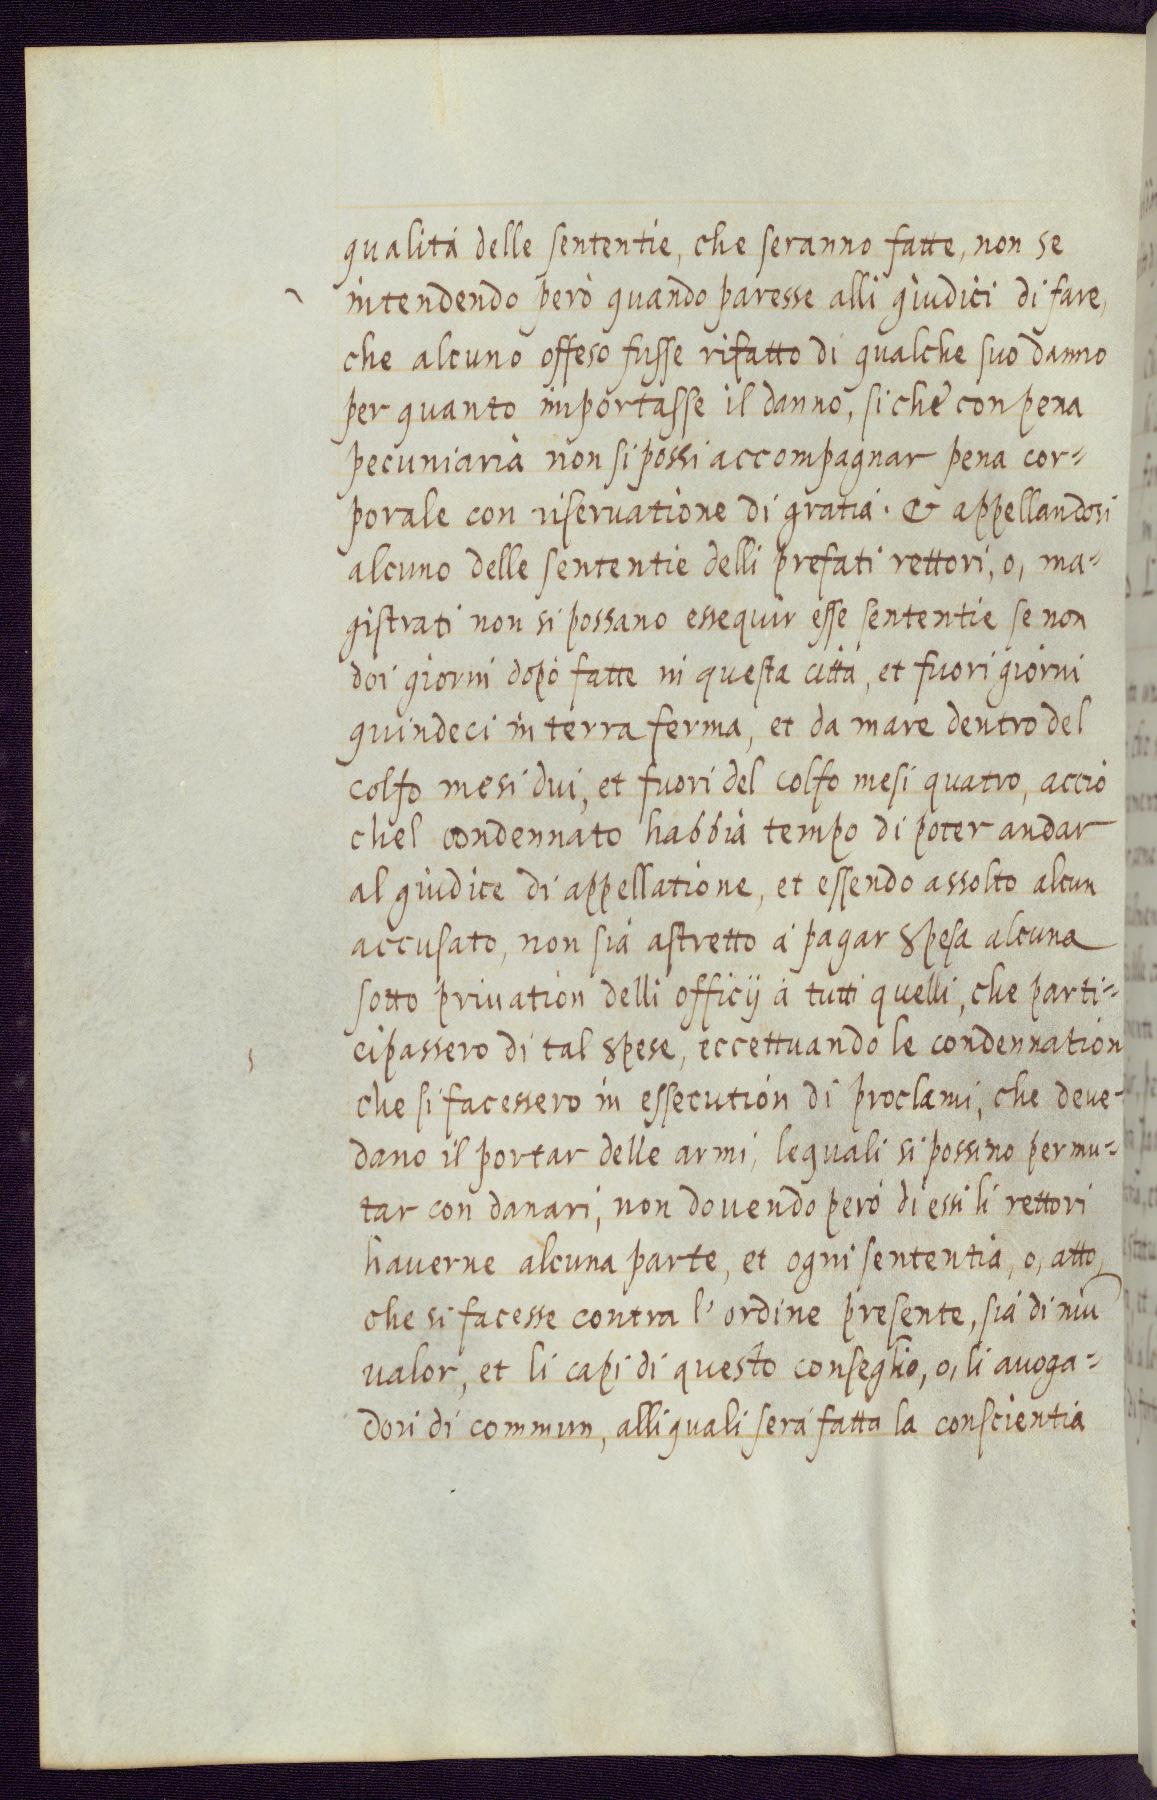 qualità delle sententie, che seranno fatte, non se
intendendo però quando paresse alli giudici di fare,
che alcuno offeso fusse rifatto di qualche suo danno
per quanto importasse il danno, si che con pena
pecuniaria non si possi accompagnar pena cor-
porale con riservatione di gratia. & appellandosi
alcuno delle sententie delli prefati rettori, o, ma-
gistrati non si possano essequir esse sententie se non
doi giorni dopò fatte in questa città, et fuori giorni
quindeci in terra ferma, et da mare dentro del
colfo mesi dui, et fuori del colfo mesi quatro, acciò
chel condennato habbia tempo di poter andar
al giudice di appellatione, et essendo assolto alcun
accusato, non sia astretto à pagar spesa alcuna
sotto privation delli officij à tutti quelli, che parti-
cipassero di tal spese, eccettuando le condennation
che si facessero in essecution di proclami, che deve-
dano il portar delle armi, lequali si possino permu-
tar con danari, non dovendo però di essi li rettori
haverne alcuna parte, et ogni sententia, o, atto,
che si facesse contra l'ordine presente, sia di niu
valor, et li capi di questo conseglio, o, li avoga-
dori di commun, alli quali serà fatta la conscientia